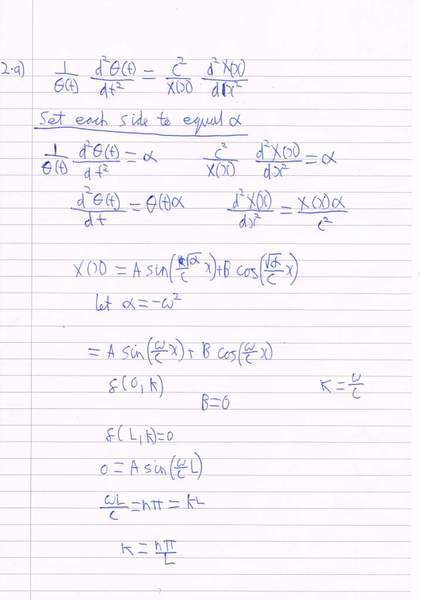 2.a) 1/Θ(t) d²Θ(t)/dt² = c²/X(x) d²X(x)/dx²
Set each side to equal α
1/Θ(t) d²Θ(t)/dt² = α   c²/X(x) d²X(x)/dx² = α
d²Θ(t)/dt = Θ(t)α   d²X(x)/dx² = X(x)α/c²
X(x) = A sin(√α/c x) + B cos(√α/c x)
let α = -ω²
= A sin(ω/c x) + B cos(ω/c x)
f(0, k)   K = ω/c
B = 0
f(L, k) = 0
0 = A sin(ω/c L)
ωL/c = nπ = kL
K = nπ/L